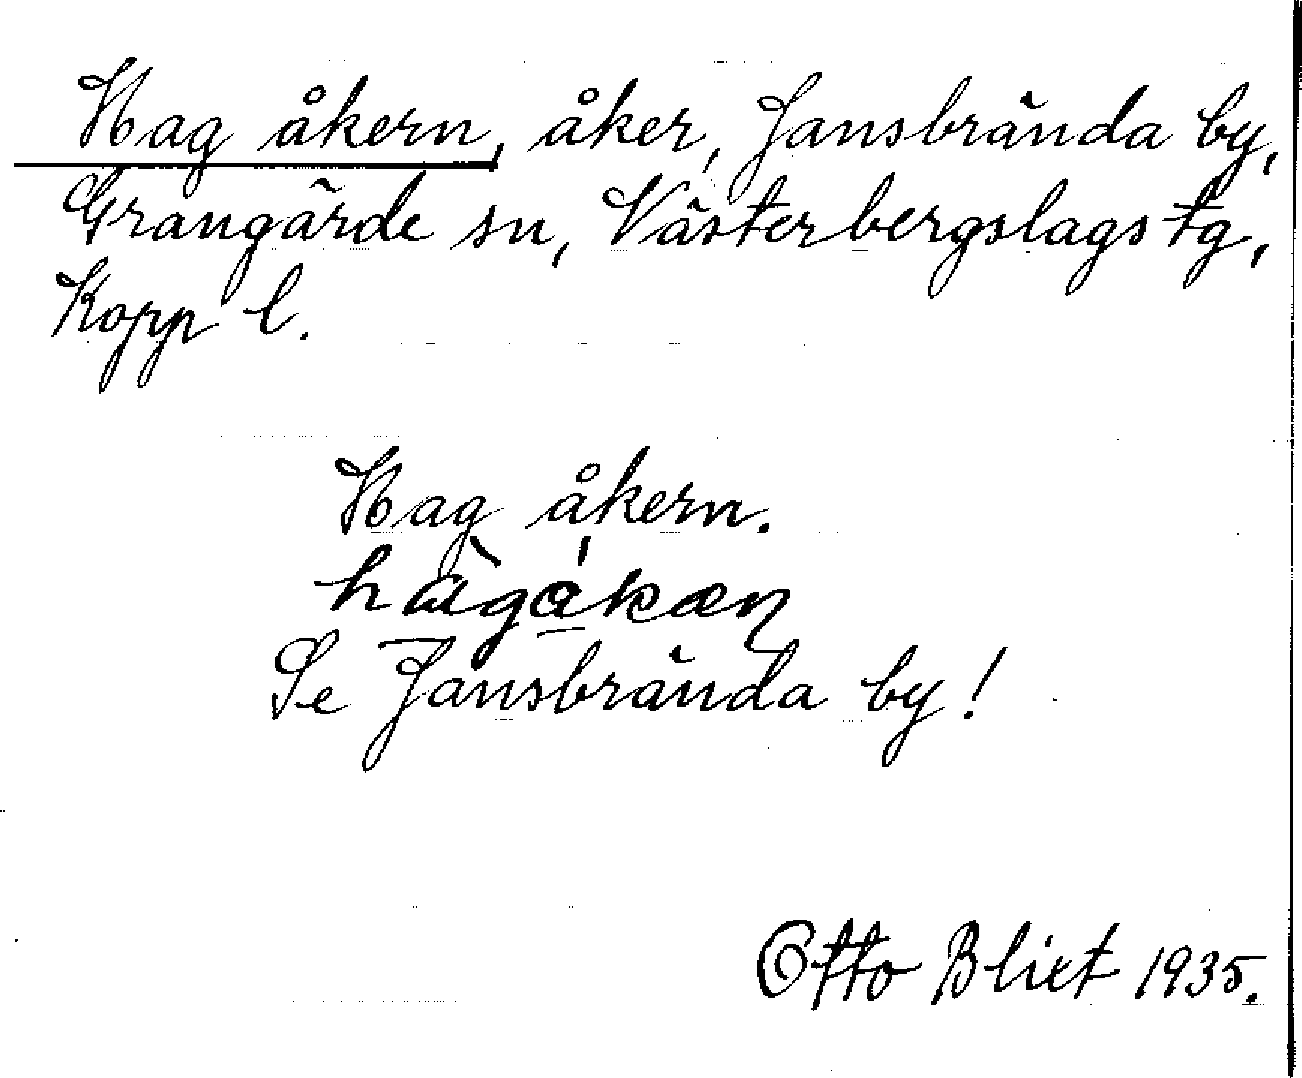 Hag åkern, åker, Jansbrända by,
Grangärde sn, Västerbergslags tg,
Kopp l.
Hag åkern.
Se Jansbrända by!
Otto Blixt 1935.